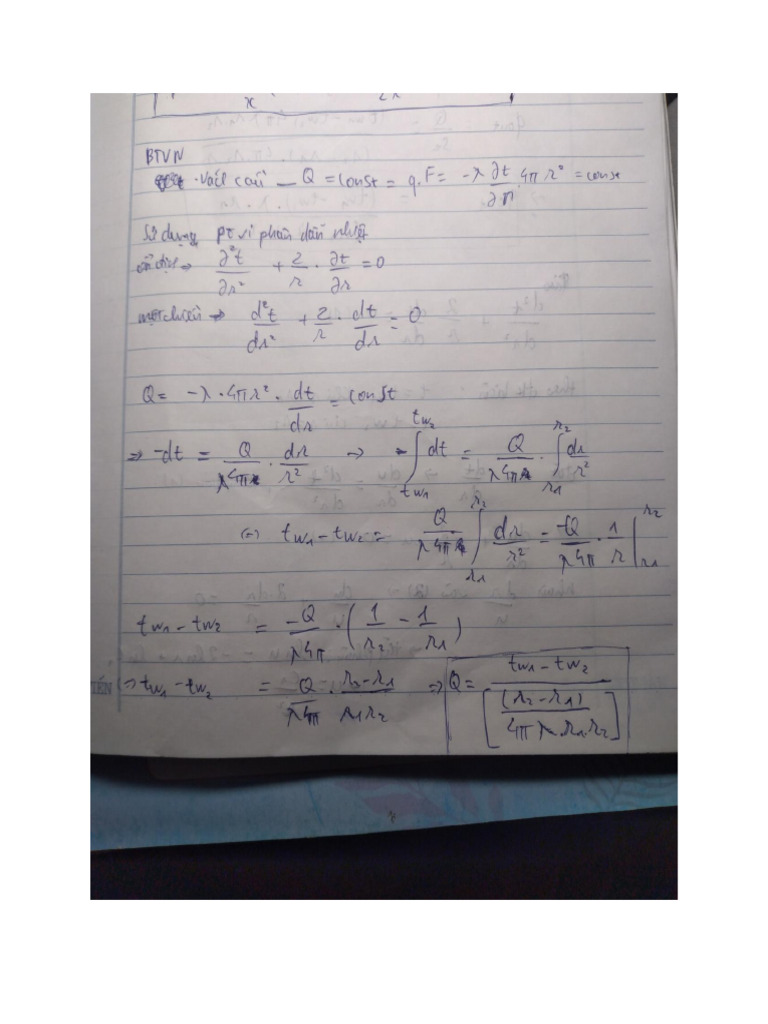 x 2λ
BTVN
• Vách cầu — Q = const = q.F = -λ ∂t/∂n . 4π r² = const
Sử dụng pt vi phân dẫn nhiệt
ổn định → ∂²t/∂r² + 2/r . ∂t/∂r = 0
một chiều → d²t/dr² + 2/r . dt/dr = 0
Q = -λ . 4πr² . dt/dr = const
⇒ -dt = Q/λ4π . dr/r² → -∫_{tw1}^{tw2} dt = Q/λ4π . ∫_{r1}^{r2} dr/r²
(=) tw1 - tw2 = Q/λ4π ∫_{r1}^{r2} dr/r² = -Q/λ4π . 1/r |_{r1}^{r2}
tw1 - tw2 = -Q/λ4π . (1/r2 - 1/r1)
(⇒ tw1 - tw2 = Q/λ4π . r2-r1/r1r2 ⇒ Q = tw1 - tw2/[(r2-r1)/4πλ.r1.r2]